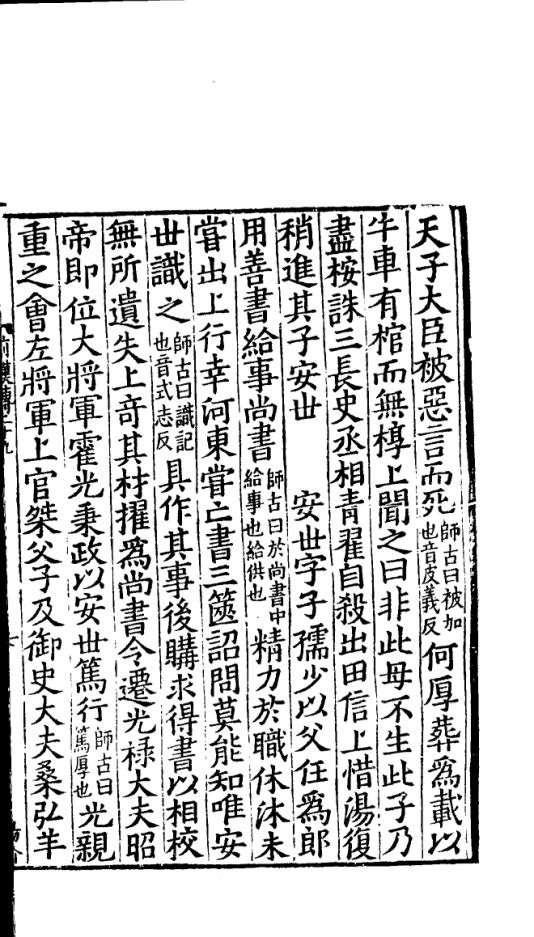 天子大臣被惡言而死師古曰被加也音皮義反何厚葬爲載以
牛車有棺而無椁上聞之曰非此母不生此子乃
盡桉誅三長史丞相青翟自殺出田信上惜湯復
稍進其子安丗　安丗字子孺少以父任爲郎
用善書給事尚書師古曰於尚書中給事也給供也精力於職休沐未
甞出上行幸河東甞亡書三篋詔問莫能知唯安
丗識之師古曰識記也音式志反具作其事後購求得書以相校
無所遺失上奇其材擢爲尚書令遷光禄大夫昭
帝即位大將軍霍光秉政以安丗篤行師古曰篤厚也光親
重之會左將軍上官桀父子及御史大夫桑弘羊